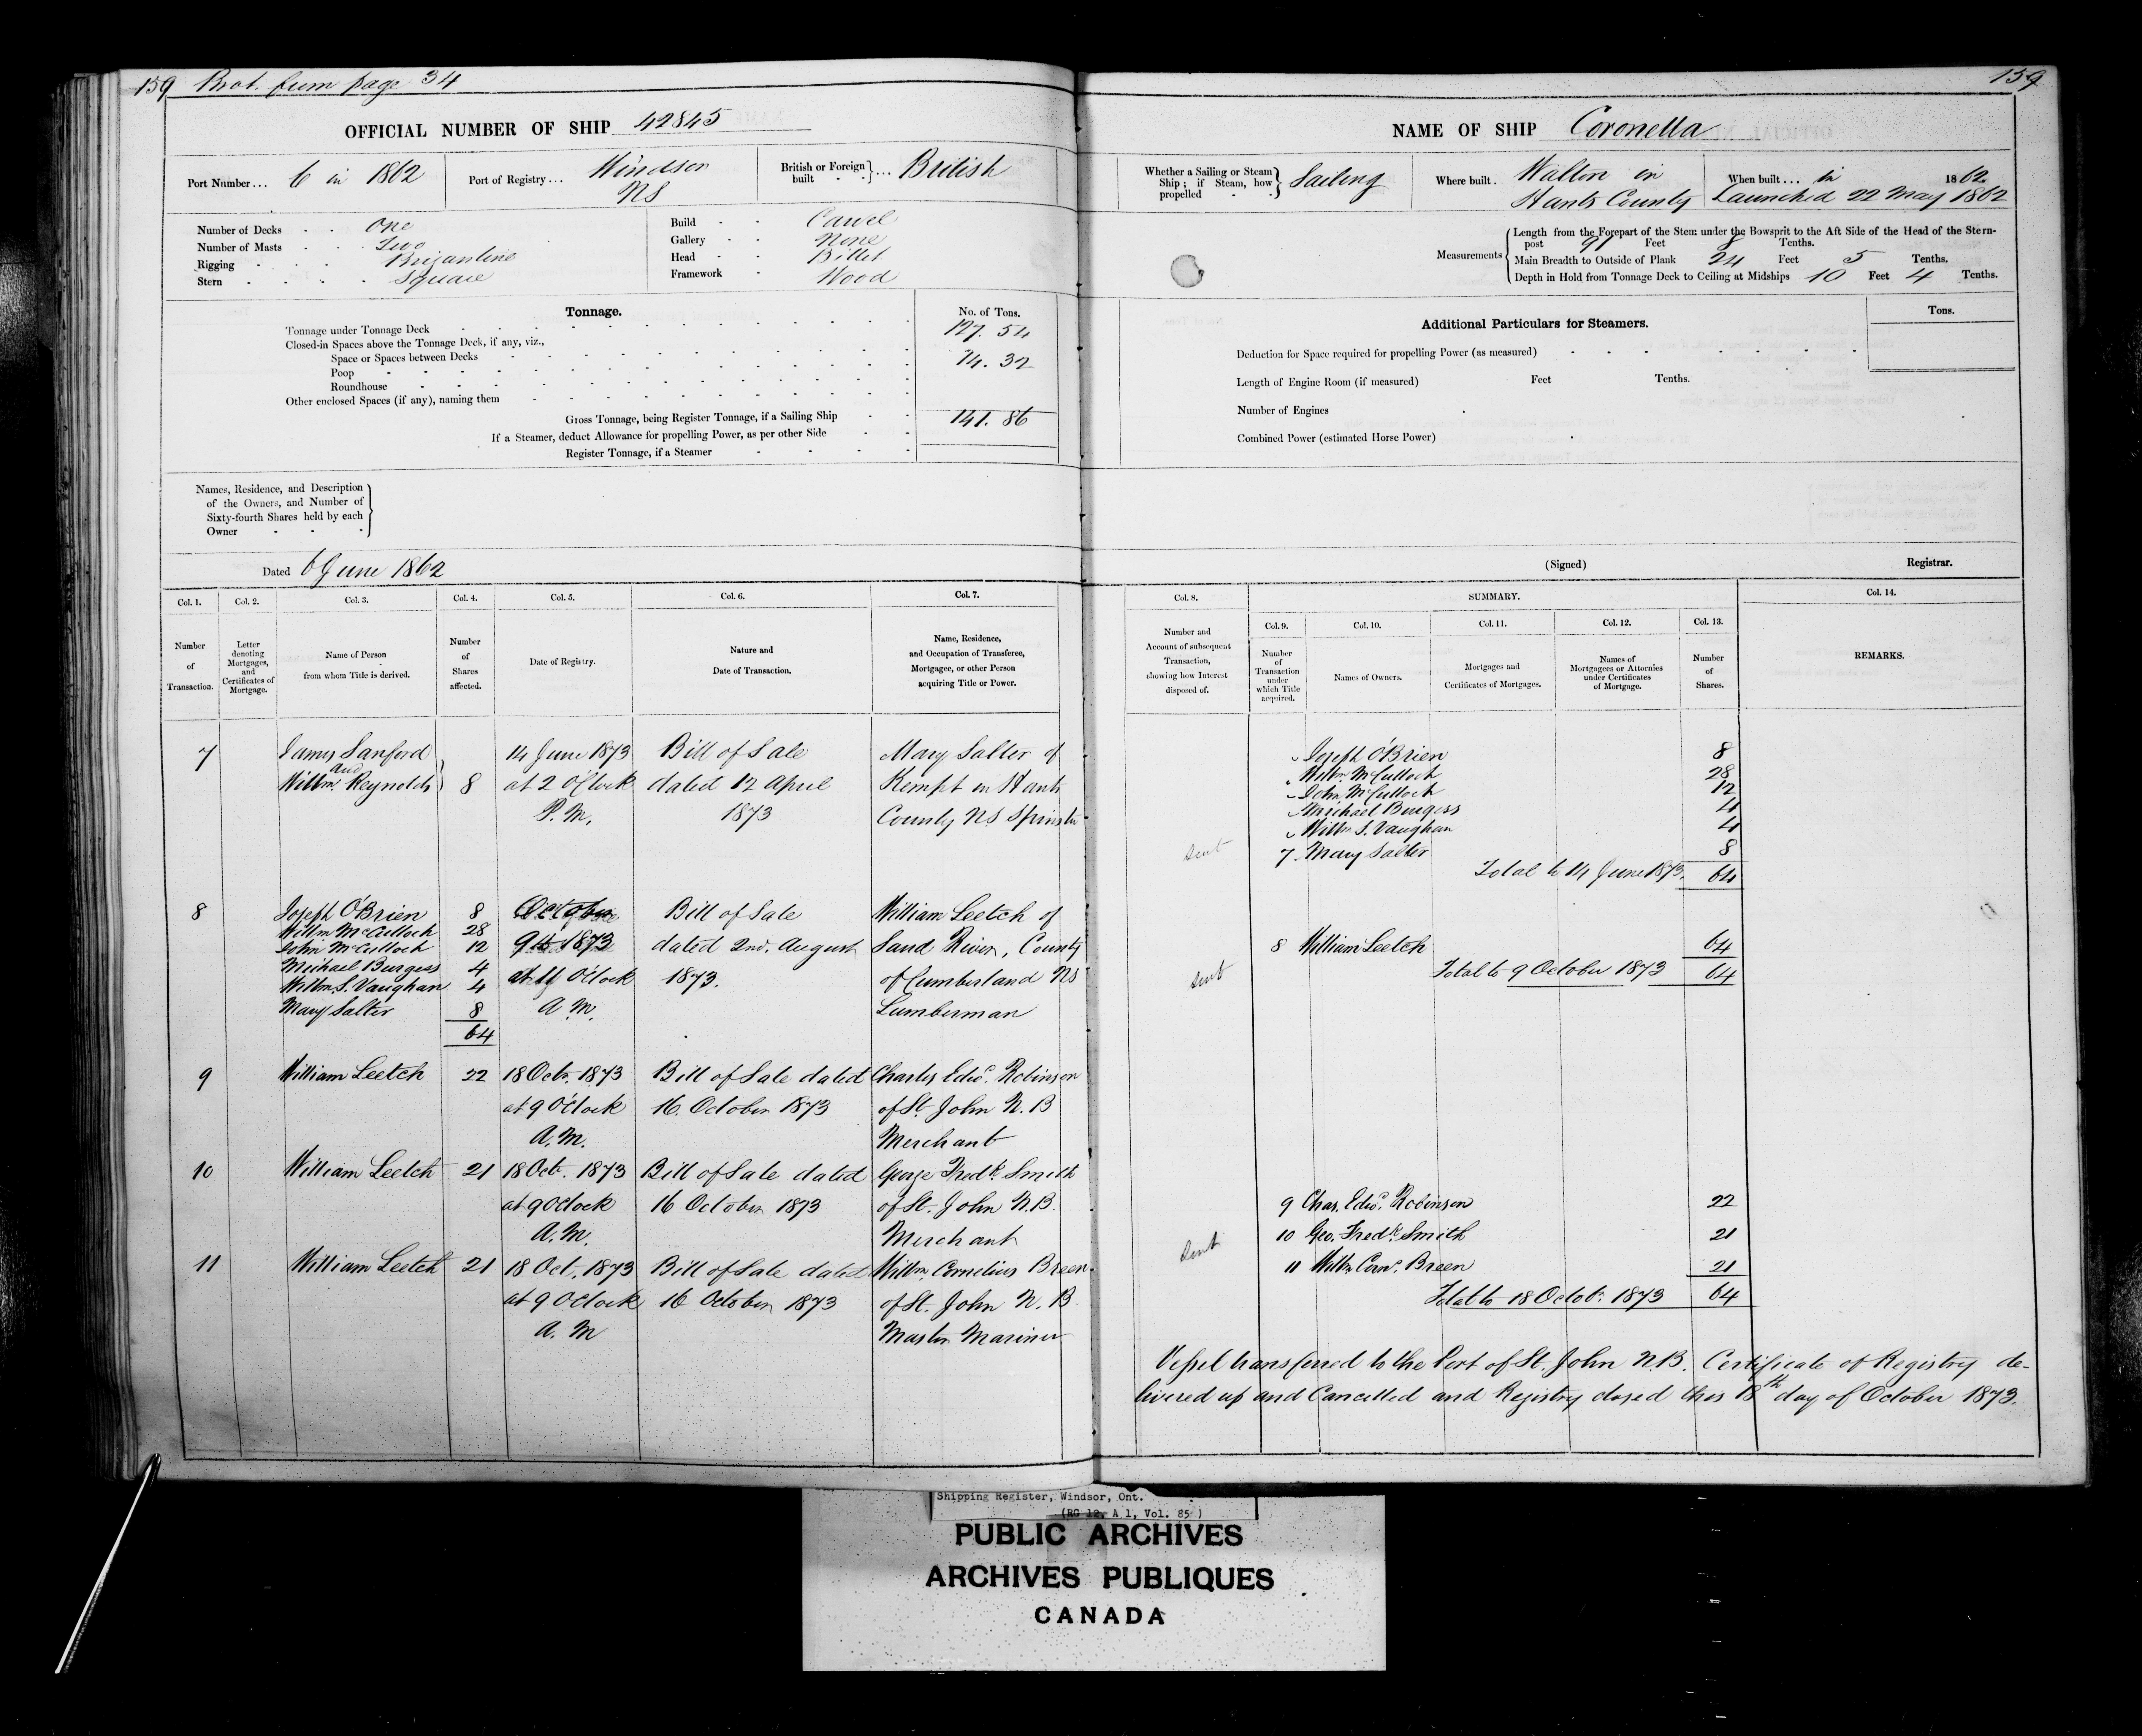 159 Brot. from page 34
OFFICIAL NUMBER OF SHIP 42845
Port Number... 6 in 1862
Port of Registry... Windsor NS
British or Foreign built } ... British
Number of Decks One
Number of Masts Two
Rigging Brigantine
Stern Square
Build Carvel
Gallery None
Head Billet
Framework Wood
Tonnage.
No. of Tons.
Tonnage under Tonnage Deck 127.54
Closed-in Spaces above the Tonnage Deck, if any, viz.,
Space or Spaces between Decks 14.32
Poop
Roundhouse
Other enclosed Spaces (if any), naming them
Gross Tonnage, being Register Tonnage, if a Sailing Ship 141.86
If a Steamer, deduct Allowance for propelling Power, as per other Side
Register Tonnage, if a Steamer
Names, Residence, and Description
of the Owners, and Number of
Sixty-fourth Shares held by each
Owner
Dated 6 June 1862
Col. 1. Col. 2. Col. 3. Col. 4. Col. 5. Col. 6. Col. 7.
Number of Transaction.
Letter denoting Mortgages, and Certificates of Mortgage.
Name of Person from whom Title is derived.
Number of Shares affected.
Date of Registry.
Nature and Date of Transaction.
Name, Residence, and Occupation of Transferee, Mortgagee, or other Person acquiring Title or Power.
7 James Sanford 14 June 1873 Bill of Sale Mary Salter of
and
Willm. Reynolds 8 at 2 O'Clock dated 17 April Kempt in Hants
P.M. 1873 County NS Spinster
8 Joseph O'Brien 8 October Bill of Sale William Leetch of
Willm McCulloch 28
John McCulloch 12 9th 1873 dated 2nd. August Sand River, County
Michael Burgess 4
Willm. S. Vaughan 4 at 11 O'Clock 1873. of Cumberland NS
Mary Salter 8 A.M. Lumberman
64
9 William Leetch 22 18 Octr. 1873 Bill of Sale dated Charles Edwd. Robinson
at 9 O'Clock 16. October 1873 of St. John N.B
A.M. Merchant
10 William Leetch 21 18 Oct. 1873 Bill of Sale dated George Fredk. Smith
at 9 O'Clock 16 October 1873 of St. John N.B.
A.M. Merchant
11 William Leetch 21 18 Oct. 1873 Bill of Sale dated Willm. Cornelius Breen
at 9 O'Clock 16 October 1873 of St. John N.B
A.M Master Mariner
159
NAME OF SHIP Coronella
Whether a Sailing or Steam Ship; if Steam, how propelled } Sailing
Where built. Walton in Hants County
When built... in 1862.
Launched 22 May 1862
Measurements
Length from the Forepart of the Stem under the Bowsprit to the Aft Side of the Head of the Stern-
post 91 Feet 8 Tenths.
Main Breadth to Outside of Plank 24 Feet 5 Tenths.
Depth in Hold from Tonnage Deck to Ceiling at Midships 10 Feet 4 Tenths.
Additional Particulars for Steamers.
Tons.
Deduction for Space required for propelling Power (as measured)
Length of Engine Room (if measured) Feet Tenths.
Number of Engines
Combined Power (estimated Horse Power)
(Signed) Registrar.
Col. 8. SUMMARY. Col. 14.
Col. 9. Col. 10. Col. 11. Col. 12. Col. 13.
Number and Account of subsequent Transaction, showing how Interest disposed of.
Number of Transaction under which Title acquired.
Names of Owners.
Mortgages and Certificates of Mortgages.
Names of Mortgagees or Attornies under Certificates of Mortgage.
Number of Shares.
REMARKS.
Joseph O'Brien 8
Willm. McCulloch 28
John McCulloch 12
Michael Burgess 4
Willm S. Vaughan 4
Sent 7. Mary Salter 8
Total to 14 June 1873. 64
8 William Leetch 64
Sent Total to 9 October 1873 64
9 Chas. Edwd. Robinson 22
10 Geo. Fredk. Smith 21
Sent
11 Willm Corns. Breen 21
Total to 18 Octobr. 1873 64
Vessel transferred to the Port of St. John N.B. Certificate of Registry de-
livered up and Cancelled and Registry closed this 18th day of October 1873.
Shipping Register, Windsor, Ont.
(RG 12, A 1, Vol. 85)
PUBLIC ARCHIVES
ARCHIVES PUBLIQUES
CANADA